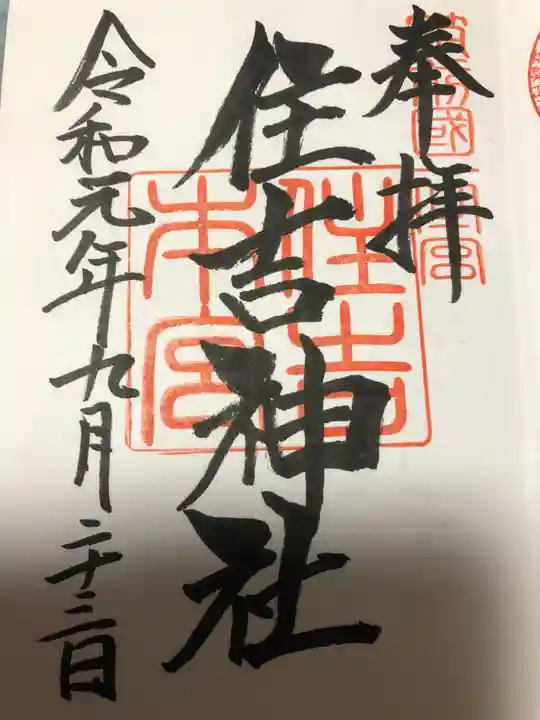 奉拝
筑前國一宮
住吉神社
住吉本宮
令和元年九月二十三日